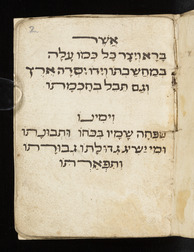 2
אשר
ברא ויצר כל כמו עלה
במחשבתו וידו יסדה ארץ
וגם תבל בחכמתו
וימינו
טפחה שמיו בכחו ותבונתו
ומי ישיג גדולתו גבורתו
ותפארתו